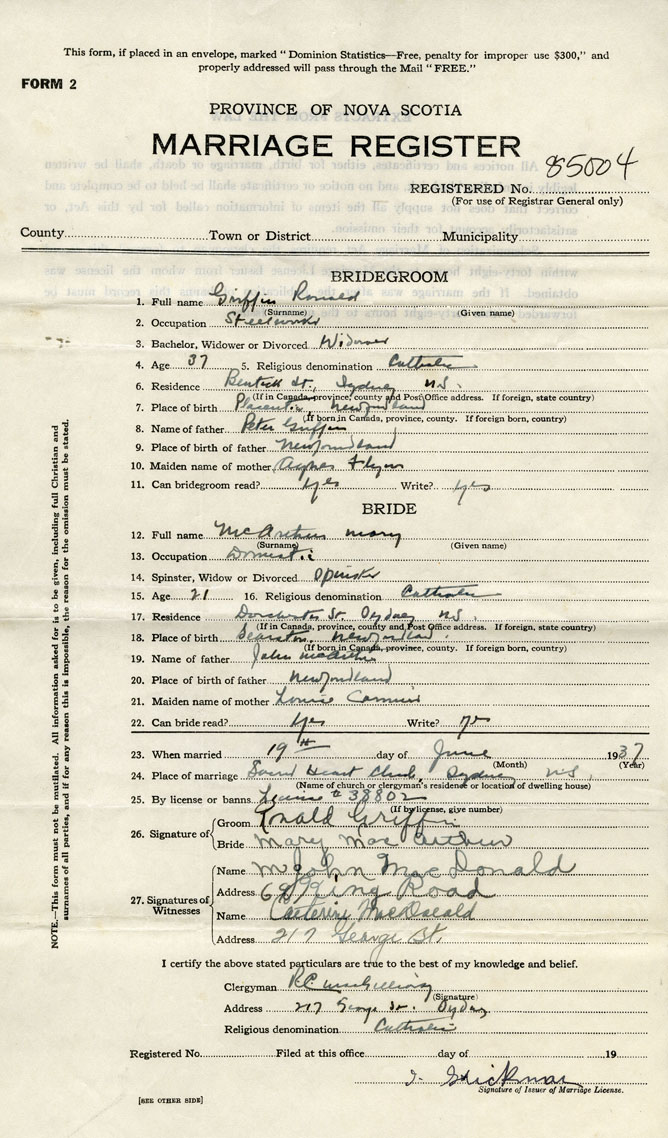 This form, if placed in an envelope, marked "Dominion Statistics—Free, penalty for improper use $300," and
properly addressed will pass through the Mail "FREE."
FORM 2
PROVINCE OF NOVA SCOTIA
MARRIAGE REGISTER
85004
REGISTERED No.
(For use of Registrar General only)
County Town or District Municipality
BRIDEGROOM
1. Full name Griffin Ronald
(Surname) (Given name)
2. Occupation Steelworker
3. Bachelor, Widower or Divorced Widower
4. Age 37 5. Religious denomination Catholic
6. Residence St., Sydney N.S.
(If in Canada, province, county and Post Office address. If foreign, state country)
7. Place of birth Newfoundland
(If born in Canada, province, county. If foreign born, country)
8. Name of father Peter Griffin
9. Place of birth of father Newfoundland
10. Maiden name of mother Agnes Flynn
11. Can bridegroom read? Yes Write? Yes
BRIDE
12. Full name McArthur Mary
(Surname) (Given name)
13. Occupation Domestic
14. Spinster, Widow or Divorced Spinster
15. Age 21 16. Religious denomination Catholic
17. Residence Dorchester St. Sydney N.S.
(If in Canada, province, county and Post Office address. If foreign, state country)
18. Place of birth Newfoundland
(If born in Canada, province, county. If foreign born, country)
19. Name of father John McArthur
20. Place of birth of father Newfoundland
21. Maiden name of mother Louise
22. Can bride read? Yes Write? Yes
23. When married 19th day of June 1937
(Month) (Year)
24. Place of marriage Sacred Heart Church, Sydney N.S.
(Name of church or clergyman's residence or location of dwelling house)
25. By license or banns License # 38802
(If by license, give number)
26. Signature of Groom Ronald Griffin
Bride Mary Mac Arthur
27. Signatures of Witnesses Name John MacDonald
Address King Road
Name Catherine MacDonald
Address 217 George St.
I certify the above stated particulars are true to the best of my knowledge and belief.
Clergyman
(Signature)
Address 217 George St. Sydney
Religious denomination Catholic
Registered No. Filed at this office day of 19
Signature of Issuer of Marriage License.
[SEE OTHER SIDE]
NOTE.—This form must not be mutilated. All information asked for is to be given, including full Christian and
surnames of all parties, and if for any reason this is impossible, the reason for the omission must be stated.